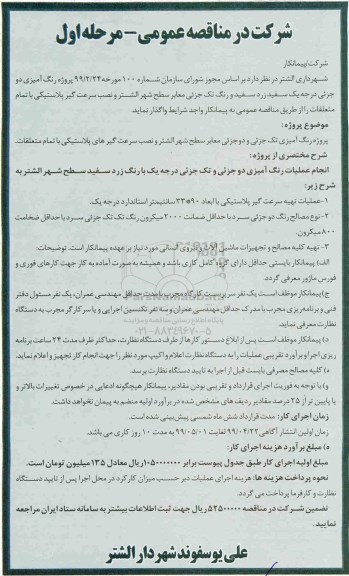 شرکت در مناقصه عمومی – مرحله اول
شرکت/پیمانکار
شهرداری الشتر در نظر دارد بر اساس مجوز شورای سازمان شماره ۱۰۰ مورخه ۹۹/۲/۲۴ پروژه رنگ آمیزی دو
جزئی درجه یک سفید زرد سفید و رنگ تک جزئی معابر سطح شهر الشتر و نصب سرعت گیر پلاستیکی با تمام
متعلقات را از طریق مناقصه عمومی به پیمانکار واجد شرایط واگذار نماید.
موضوع پروژه:
پروژه رنگ آمیزی تک جزئی و دوجزئی معابر سطح شهر الشتر و نصب سرعت گیر های پلاستیکی با تمام متعلقات.
شرح مختصری از پروژه:
انجام عملیات رنگ آمیزی دو جزئی و تک جزئی درجه یک با رنگ زرد سفید سطح شهر الشتر به
شرح زیر:
۱-عملیات تهیه سرعت گیر پلاستیکی با ابعاد ۹۰*۳۳ سانتیمتر استاندارد درجه یک.
۲-نوع مصالح رنگ دو جزئی سرد با حداقل ضمانت ۲۰۰۰ میکرون رنگ تک جزئی سرد با حداقل ضخامت
۸۰۰ میکرون.
۳- تهیه کلیه مصالح و تجهیزات ماشین آلات و نیروی انسانی مورد نیاز بر عهده پیمانکار است. توضیحات:
الف) پیمانکار بایستی حداقل دارای گروه کامل کاری باشد و همیشه به صورت آماده به کار جهت کارهای فوری و
فورس ماژور معرفی گردد.
ج)پیمانکار موظف است یک نفر سرپرست کارگاه مجرب با مدرک حداقل مهندسی عمران، یک نفر مسئول دفتر
فنی و برنامه ریزی مجرب با مدرک حداقل مهندسی عمران و سه نفر تکنسین اجرایی و یا سرکارگر مجرب به دستگاه
نظارت معرفی نماید.
د) پیمانکار موظف است پس از ابلاغ دستور کارها از طرف دستگاه نظارت، حداکثر ظرف مدت ۲۴ ساعت برنامه
ریزی اجرا و برآورد تقریبی عملیات را به دستگاه نظارت اعلام و اکیپ مورد نظر را جهت انجام کار تجهیز و اعلام نماید.
ه) کلیه مصالح مصرفی بایست قبل از اجرا به تایید دستگاه نظارت برسد.
و) با توجه به فوریت اجرای قرارداد و تقریبی بودن مقادیر، پیمانکار هیچگونه ادعایی در خصوص تغییرات بالاتر و
یا پایین تر از ۲۵ درصد مقادیر ردیف های مشخص شده در برآورد اولیه منضم به پیمان نخواهد داشت.
زمان اجرای کار: مدت قرارداد شش ماه شمسی پیش بینی شده است.
زمان اولین انتشار آگاهی ۹۹/۰۴/۲۲ لغایت ۹۹/۰۵/۰۱ به مدت ۱۰ روز کاری می باشد.
ه) مبلغ برآورد هزینه اجرای کار:
مبلغ اولیه اجرای کار طبق جدول پیوست برابر ریال معادل ۱۳۵ میلیون تومان است.
نحوه پرداخت هزینه ها: هزینه اجرای عملیات دبر حسب میزان کارکرد در محل اجرا پس از تایید دستگاه
نظارت و کارفرما پرداخت می گردد.
تضمین شرکت در مناقصه ۵۲۵۰۰۰۰۰ ریال جهت ثبت اطلاعات بیشتر به سامانه ستاد ایران مراجعه
نمایید.
علی یوسفوند شهردار الشتر